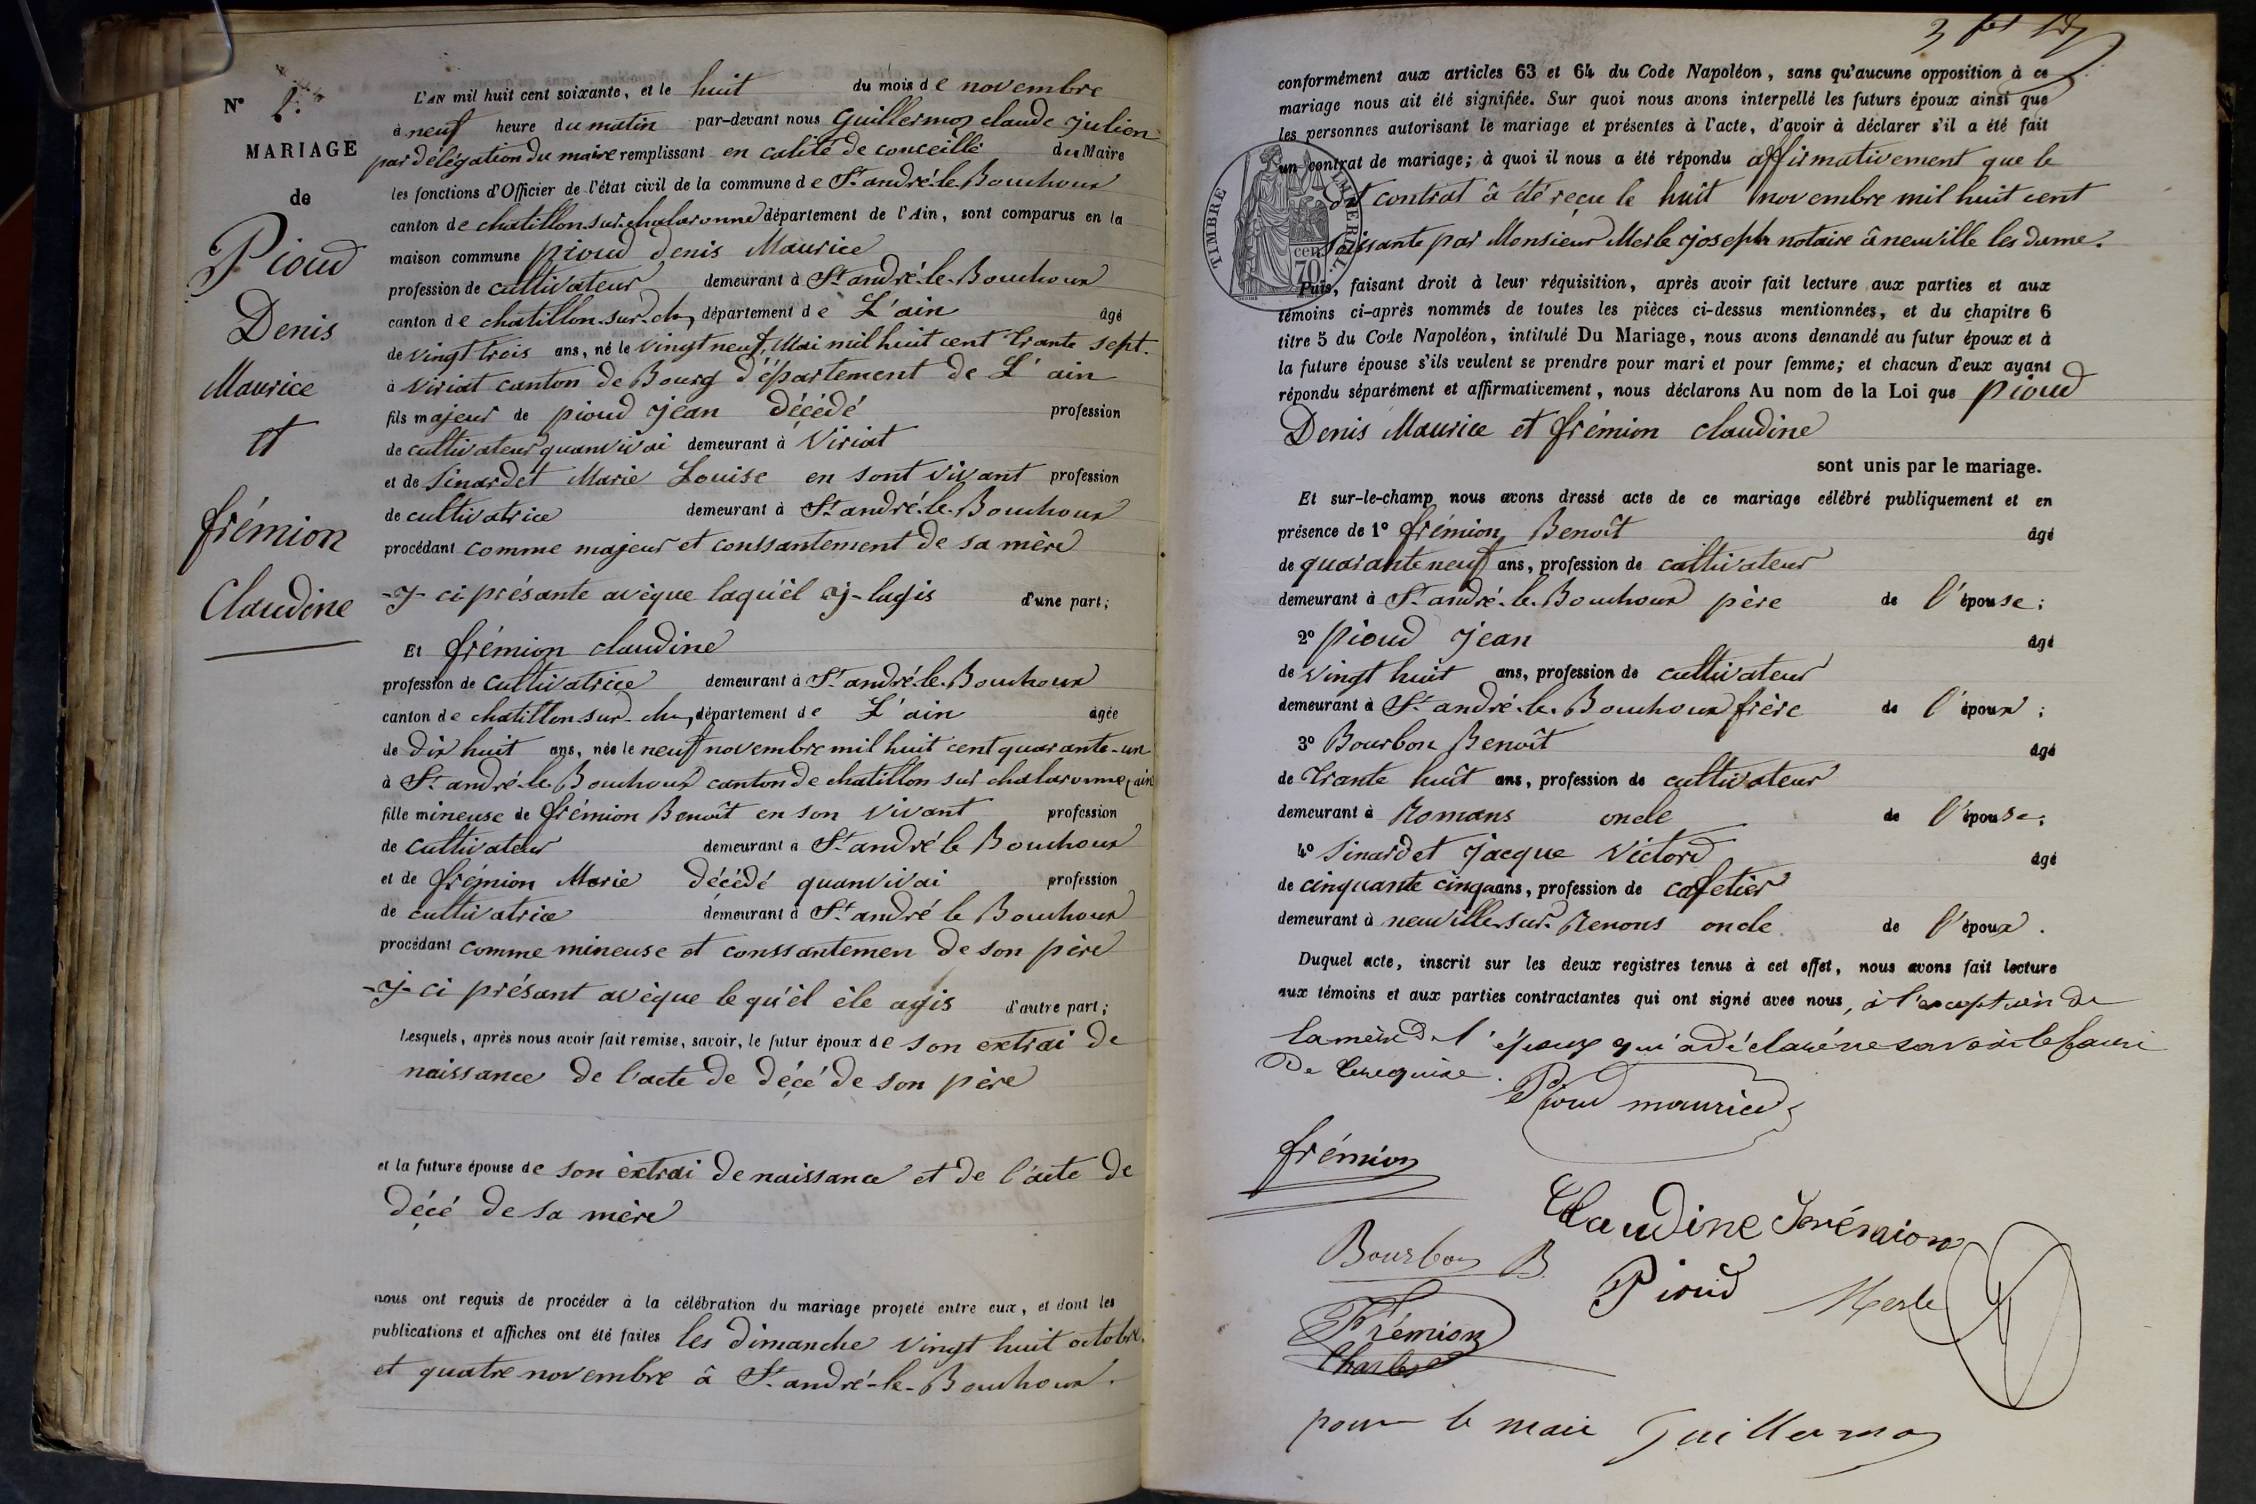 N° 2.
MARIAGE
de
Pioud
Denis
Maurice
et
frémion
Claudine
L'AN mil huit cent soixante, et le huit du mois de novembre
à neuf heure du matin par-devant nous Guillermoz claude julien
par délégation du maire remplissant en calité de conceillé du Maire
les fonctions d'Officier de l'état civil de la commune de St andré-le-Bouchoux
canton de chatillon sur chalaronne département de l'Ain, sont comparus en la
maison commune pioud denis Maurice
profession de cultivateur demeurant à St andré-le-Bouchoux
canton de chatillon-sur-ch, département de L'ain âgé
de vingt trois ans, né le vingt neuf Mai mil huit cent trante sept.
à viriat canton de Bourg département de L'ain
fils majeur de pioud jean décédé profession
de cultivateur quanvivai demeurant à Viriat
et de Sinardet Marie Louise en sont vivant profession
de cultivatrice demeurant à St andré-le-Bouchoux
procédant comme majeur et conssantement de sa mère
-y- ci présante avèque laqu'él y-lagis d'une part;
Et frémion claudine
profession de cultivatrice demeurant à St andré-le-Bouchoux
canton de chatillon-sur-ch, département de L'ain âgée
de dix huit ans, née le neuf novembre mil huit cent quarante-un
à St andré-le-Bouchoux canton de chatillon sur chalaronne (ain
fille mineuse de frémion Benoît en son vivant profession
de cultivateur demeurant à St andré le Bouchoux
et de frémion Marie décédé quanvivai profession
de cultivatrice demeurant à St andré le Bouchoux
procédant comme mineuse et conssantemen de son père
-y- ci présant avèque le qu'él èle agis d'autre part;
Lesquels, après nous avoir fait remise, savoir, le futur époux de son extrai de
naissance de l'acte de décé de son père
et la future épouse de son èxtrai de naissance et de l'acte de
décé de sa mère
nous ont requis de procéder à la célébration du mariage projeté entre eux, et dont les
publications et affiches ont été faites les dimanche vingt huit octobre
et quatre novembre à St andré-le-Bouchoux.
conformément aux articles 63 et 64 du Code Napoléon, sans qu'aucune opposition à ce
mariage nous ait été signifiée. Sur quoi nous avons interpellé les futurs époux ainsi que
les personnes autorisant le mariage et présentes à l'acte, d'avoir à déclarer s'il a été fait
un contrat de mariage; à quoi il nous a été répondu affirmativement que le
dit contrat â été reçu le huit novembre mil huit cent
soissante par Monsieur Merle joseph notaire â neuville les dame.
TIMBRE IMPERIAL
cen. 70
Puis, faisant droit à leur réquisition, après avoir fait lecture aux parties et aux
témoins ci-après nommés de toutes les pièces ci-dessus mentionnées, et du chapitre 6
titre 5 du Code Napoléon, intitulé Du Mariage, nous avons demandé au futur époux et à
la future épouse s'ils veulent se prendre pour mari et pour femme; et chacun d'eux ayant
répondu séparément et affirmativement, nous déclarons Au nom de la Loi que pioud
Denis Maurice et frémion claudine
sont unis par le mariage.
Et sur-le-champ nous avons dressé acte de ce mariage célébré publiquement et en
présence de 1° frémion Benoît âgé
de quarante neuf ans, profession de cultivateur
demeurant à St andré-le-Bouchoux père de l'épouse;
2° pioud jean âgé
de vingt huit ans, profession de cultivateur
demeurant à St andré-le-Bouchoux frère de l'époux;
3° Bourbon Benoît âgé
de trante huit ans, profession de cultivateur
demeurant à Romans oncle de l'épouse;
4° Sinardet jacque victord âgé
de cinquante cinq ans, profession de cafetier
demeurant à neuville sur Renons oncle de l'époux.
Duquel acte, inscrit sur les deux registres tenus à cet effet, nous avons fait lecture
aux témoins et aux parties contractantes qui ont signé avec nous, à l'exception de
la mère de l'époux qui a déclaré ne savoir le faire
De ce requise.
Pioud maurice
frémion
Claudine Frémion
Bourbon B.
Pioud Merle
Frémion
Charles
pour le maire Guillermoz